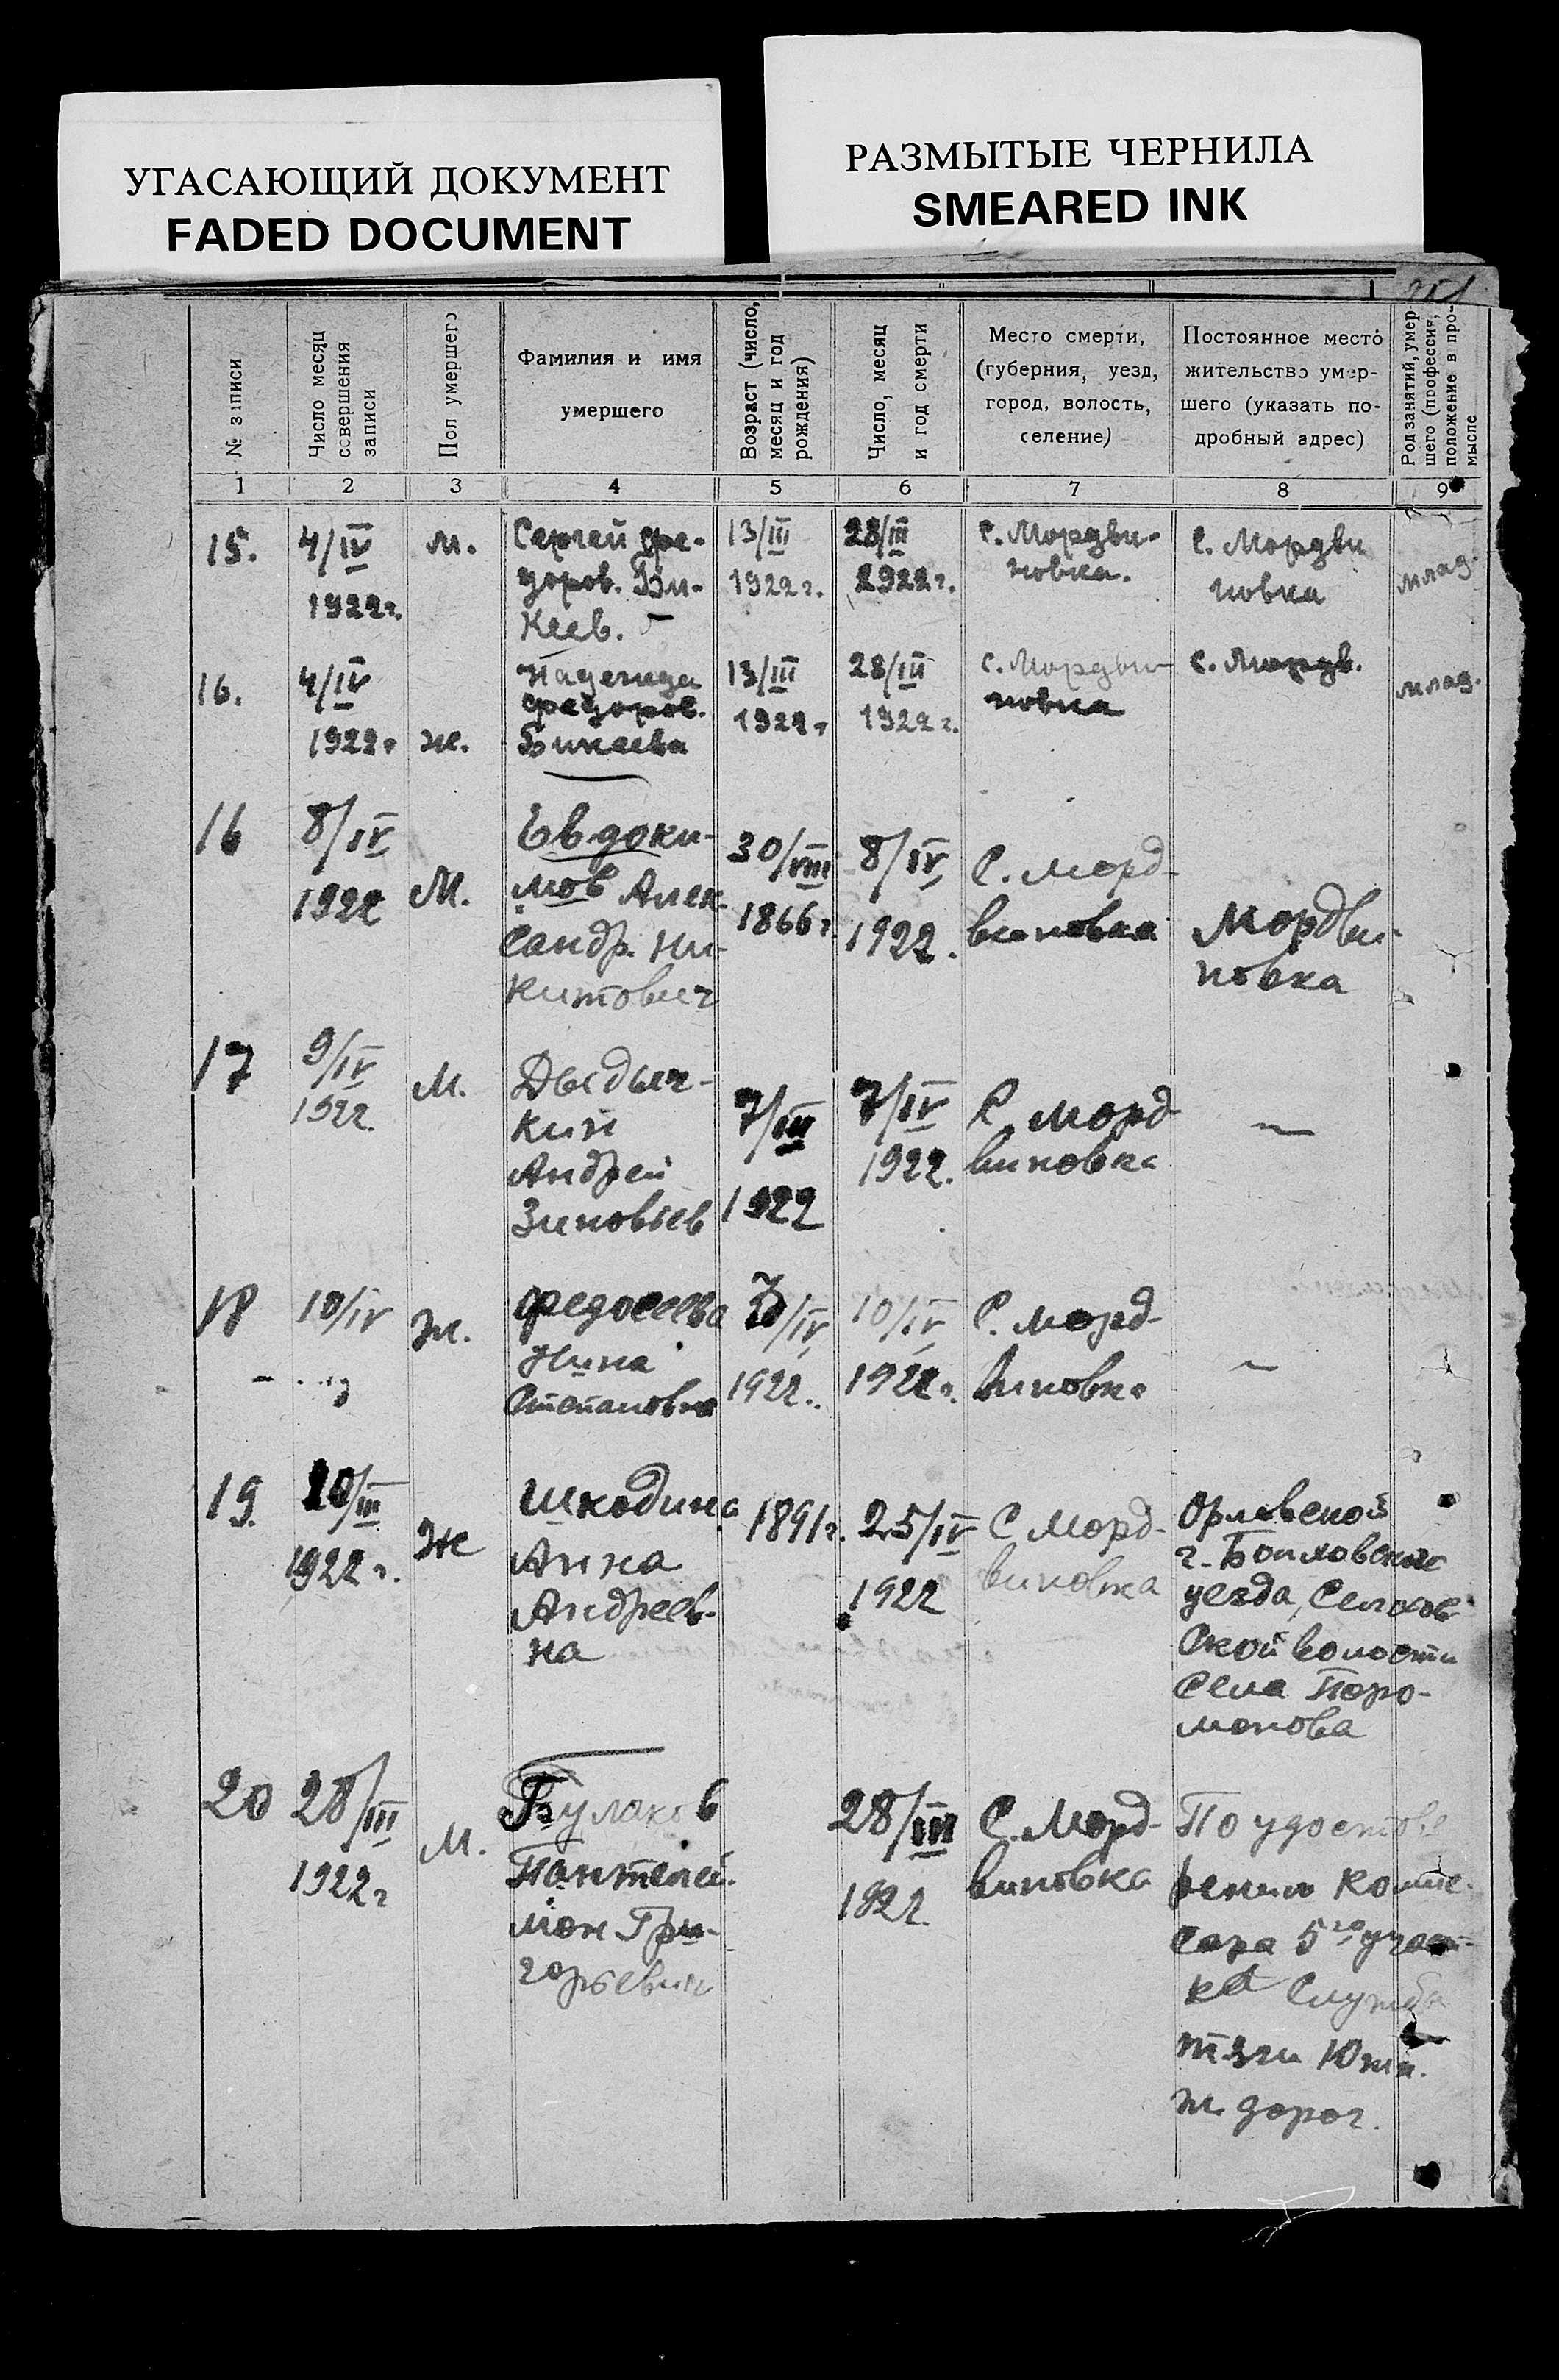 УГАСАЮЩИЙ ДОКУМЕНТ
FADED DOCUMENT
РАЗМЫТЫЕ ЧЕРНИЛА
SMEARED INK
№ записи
Число месяц
совершения
записи
Пол умершего
Фамилия и имя
умершего
Возраст (число,
месяц и год
рождения)
Число, месяц
и год смерти
Место смерти,
(губерния, уезд,
город, волость,
селение)
Постоянное место
жительство умер-
шего (указать по-
дробный адрес)
Род занятий, умер-
шего (профессия,
положение в про-
мысле
1 2 3 4 5 6 7 8 9
15.
4/IV
1922г.
м.
Сергей Фе-
доров. Би-
кеев.
13/III
1922г.
28/III
1922г.
с. Мордви-
новка.
с. Мордви
новка
млад.
16.
4/IV
1922г
ж.
Надежда
Федоров.
Бикеева
13/III
1922г
28/III
1922г.
с. Мордви-
новка
с. Мордв.
млад.
16
8/IV
1922
М.
Евдоки-
мов Алек-
сандр. Ни-
китович
30/VIII
1866г.
8/IV
1922.
С. Морд-
виновка
Мордви-
новка
17
9/IV
1922.
М.
Дыдыч-
кин
Андрей
Зиновьев
7/III
1922
7/IV
1922.
С Морд
виновка
—
18
10/IV
ж.
Федосеева
Нина
Степановна
/IV
1922.
10/IV
1922г.
С. Морд-
виновка
—
19.
20/III
1922г.
Же
Шкодина
Анна
Андреев-
на
1891г.
25/IV
1922
С Морд-
виновка
Орловской
г. Болховского
уезда,
ской волости
Села Поро-
монова
20
28/III
1922г
М.
Булаков
Пантелей-
мон Гри-
горьевич
28/III
1922.
С. Морд-
виновка
По удостове
рению Комис-
сара 5го участ-
ка Служба
тяги Южн.
ж. дорог.